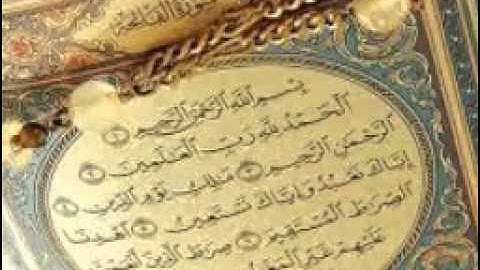 سُورَةُ الْفَاتِحَةِ
بِسْمِ اللَّهِ الرَّحْمَٰنِ الرَّحِيمِ ١
الْحَمْدُ لِلَّهِ رَبِّ الْعَٰلَمِينَ ٢
الرَّحْمَٰنِ الرَّحِيمِ ٣ مَٰلِكِ يَوْمِ الدِّينِ ٤
إِيَّاكَ نَعْبُدُ وَإِيَّاكَ نَسْتَعِينُ ٥ اهْدِنَا
الصِّرَٰطَ الْمُسْتَقِيمَ ٦ صِرَٰطَ الَّذِينَ أَنْعَمْتَ
عَلَيْهِمْ غَيْرِ